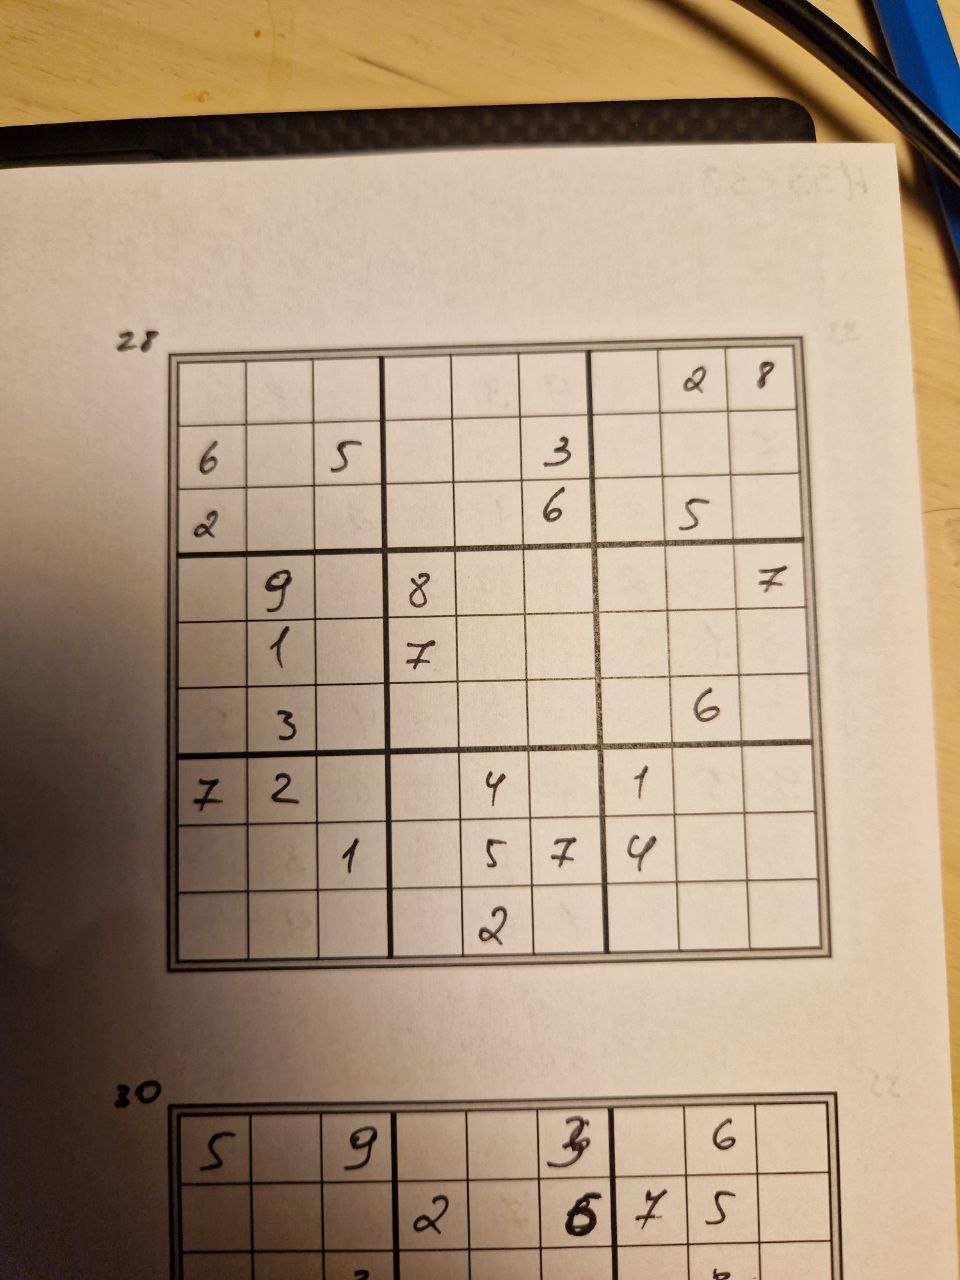 28
2 8
6 5 3
2 6 5
9 8 7
1 7
3 6
7 2 4 1
1 5 7 4
2
30
5 9 3 6
2 6 7 5